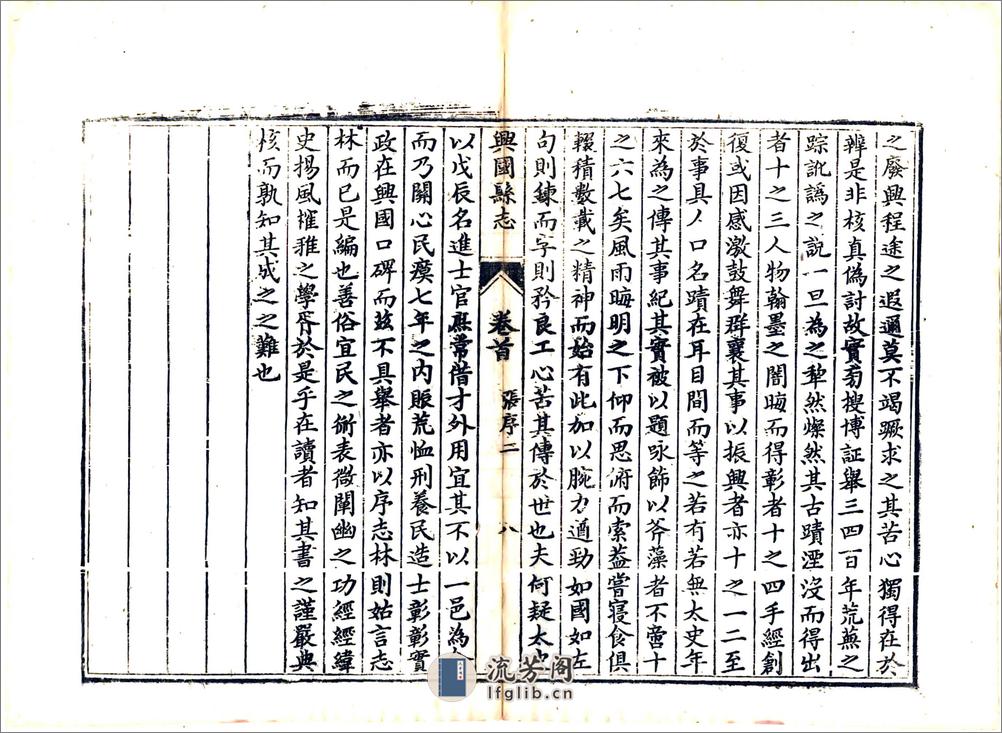 之廢興程途之遐邇莫不竭蹶求之其苦心獨得在於
辨是非核真偽討故實蒐搜博証舉三四百年荒蕪之
踪訛譌之説一旦為之犁然燦然其古蹟湮沒而得出
者十之三人物翰墨之闇晦而得彰者十之四手經創
復或因感激鼓舞群襄其事以振興者亦十之一二至
於事具人口名蹟在耳目間而等之若有若無太史年
來為之傳其事紀其實被以題咏飾以斧藻者不啻十
之六七矣風雨晦明之下仰而思俯而索葢嘗寢食俱
輟積數載之精神而始有此加以腕力遒勁如國如左
句則鍊而字則矜良工心苦其傳於世也夫何疑太史
興國縣志
卷首
張序二
八
以戊辰名進士官庶常借才外用宜其不以一邑為
而乃關心民瘼七年之內賑荒恤刑養民造士彰彰實
政在興國口碑而兹不具舉者亦以序志林則姑言志
林而已是編也善俗宜民之術表微闡幽之功經經緯
史揚風搉雅之學胥於是乎在讀者知其書之謹嚴典
核而孰知其成之之難也
流芳阁
lfglib.cn